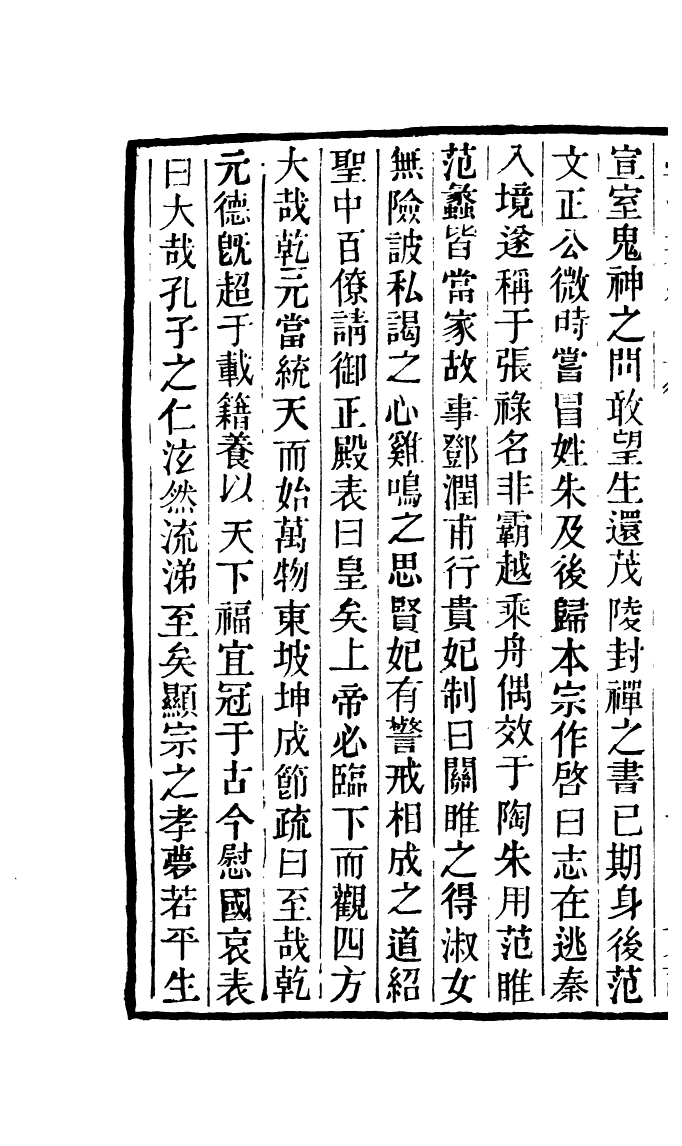 宣室鬼神之問敢望生還茂陵封禪之書已期身後范
文正公微時嘗冒姓朱及後歸本宗作啓曰志在逃秦
入境遂稱于張祿名非霸越乘舟偶效于陶朱用范睢
范蠡皆當家故事鄧潤甫行貴妃制曰關睢之得淑女
無險詖私謁之心雞鳴之思賢妃有警戒相成之道紹
聖中百僚請御正殿表曰皇矣上帝必臨下而觀四方
大哉乾元當統天而始萬物東坡坤成節疏曰至哉乾
元德旣超于載籍養以天下福宜冠于古今慰國哀表
曰大哉孔子之仁泫然流涕至矣顯宗之孝夢若平生